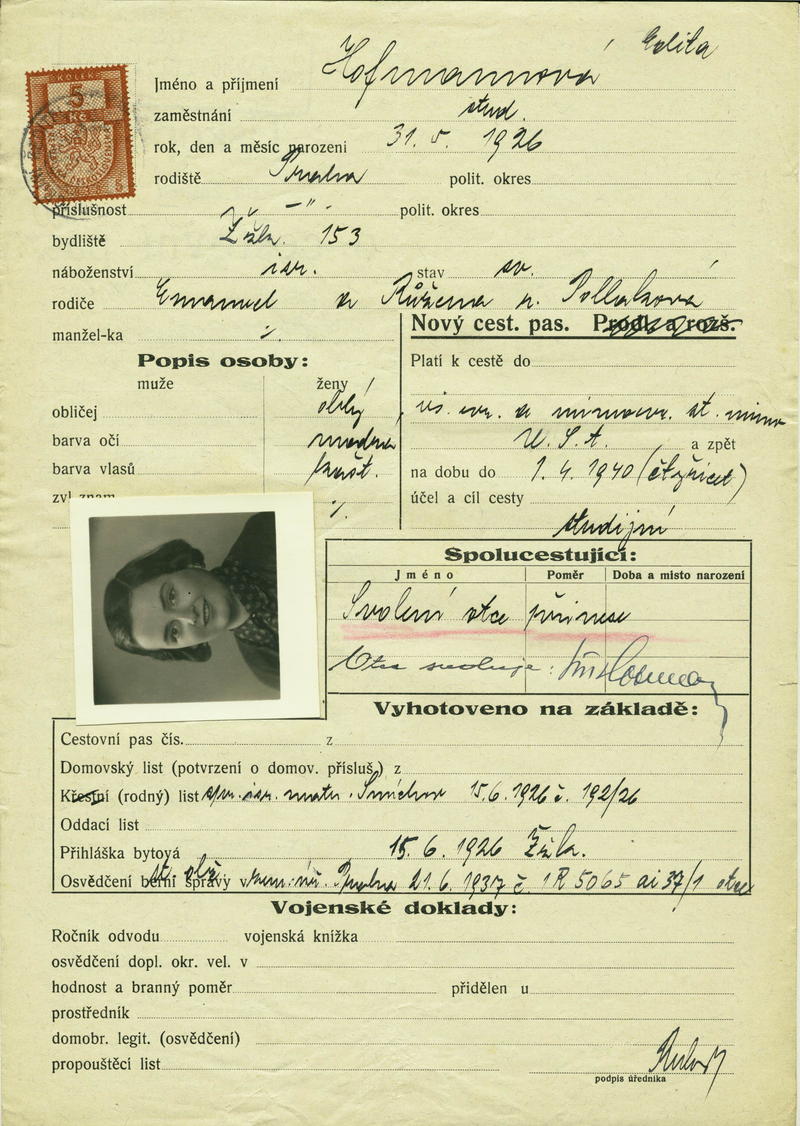 KOLEK
5
Kč
Jméno a příjmení Hofmannová Edita
zaměstnání stud.
rok, den a měsíc narození 31. 5. 1926
rodiště Praha polit. okres
příslušnost -"- polit. okres
bydliště 153
náboženství isr. stav sv.
rodiče Emanuel a Růžena r. Pollaková
manžel-ka %
Nový cest. pas. Prodl. a rozš.
Popis osoby:
Platí k cestě do
muže ženy
obličej oblý
vš. evr. a mimoevr. st. mimo
barva očí modrá
U. S. A. a zpět
barva vlasů kašt.
na dobu do 1. 4. 1940 (čtyřicet)
zvl. znam. %
účel a cíl cesty
studijní
Spolucestující:
Jméno Poměr Doba a místo narození
Svolení otce přinese
Otec svoluje:
Vyhotoveno na základě:
Cestovní pas čís. z
Domovský list (potvrzení o domov. přísluš.) z
Křestní (rodný) list isr. matr. Smíchov 15.6.1926 č. 192/26
Oddací list
Přihláška bytová 15. 6. 1926
Osvědčení berní správy v Praha 21. 6. 1937 č. 1R 5065 ai 37/1 otce
Vojenské doklady:
Ročník odvodu vojenská knížka
osvědčení dopl. okr. vel. v
hodnost a branný poměr přidělen u
prostředník
domobr. legit. (osvědčení)
propouštěcí list
podpis úředníka